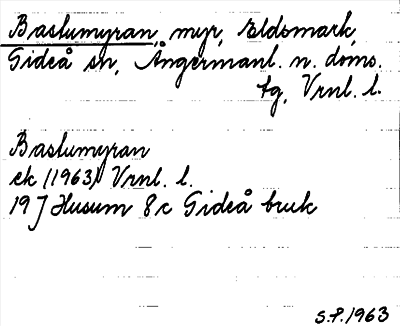 Bastumyran, myr, Eldsmark,
Gideå sn, Ångermanl. n. doms.
tg, Vrnl. l.
Bastumyran
ek (1963) Vrnl. l.
19 J Husum 8c Gideå bruk
S.P. 1963